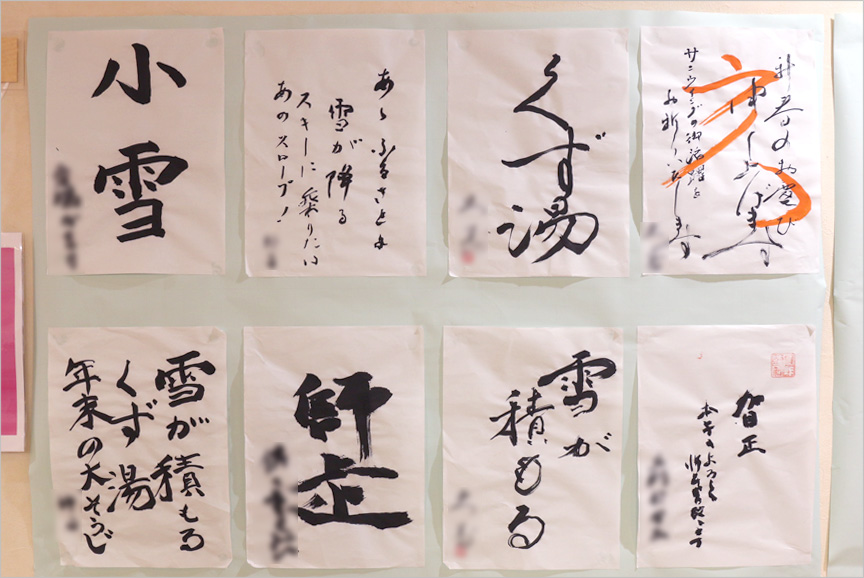 小雪
あゝふるさとよ
雪が降る
スキーに乗りたは
あのスロープ!
くず湯
新春のお慶び
申しあげます
サンウイングの御活躍を
お祈りいたします
雪が積もる
くず湯
年末の大そうじ
師走
雪が
積もる
賀正
本年もよろしく